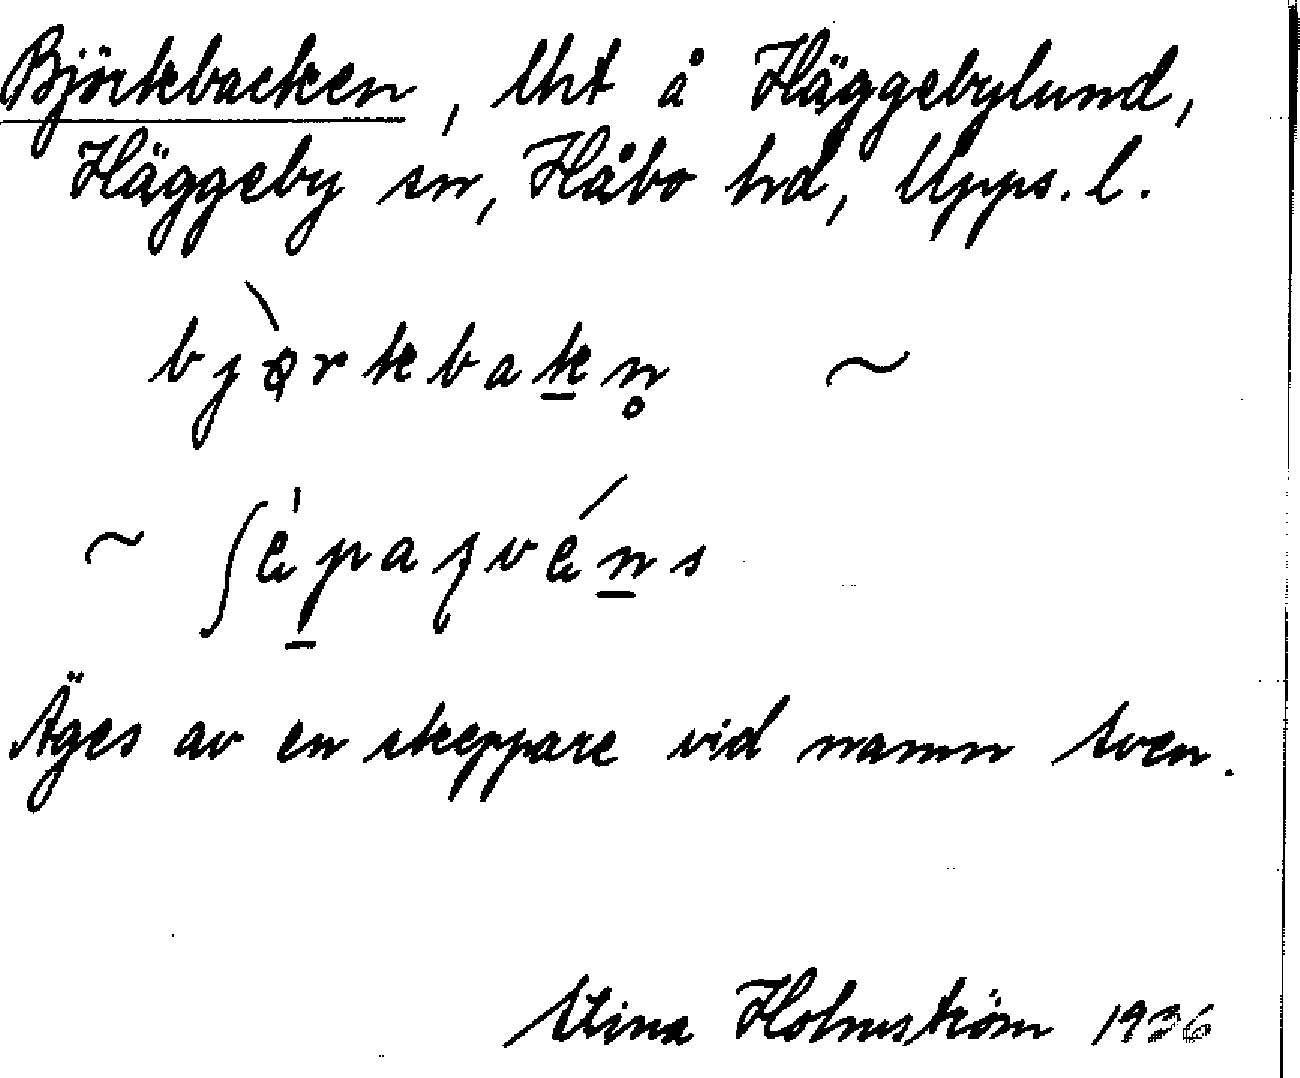 Björkbacken, lht å Häggebylund,
Häggeby sn, Håbo hd, Upps. l.
bjø̀rkbak̠n̥ ~
~ ʃɛ̍p̠aʒvɛ́n̠s
Äges av en skeppare vid namn Sven.
Stina Holmström 1936